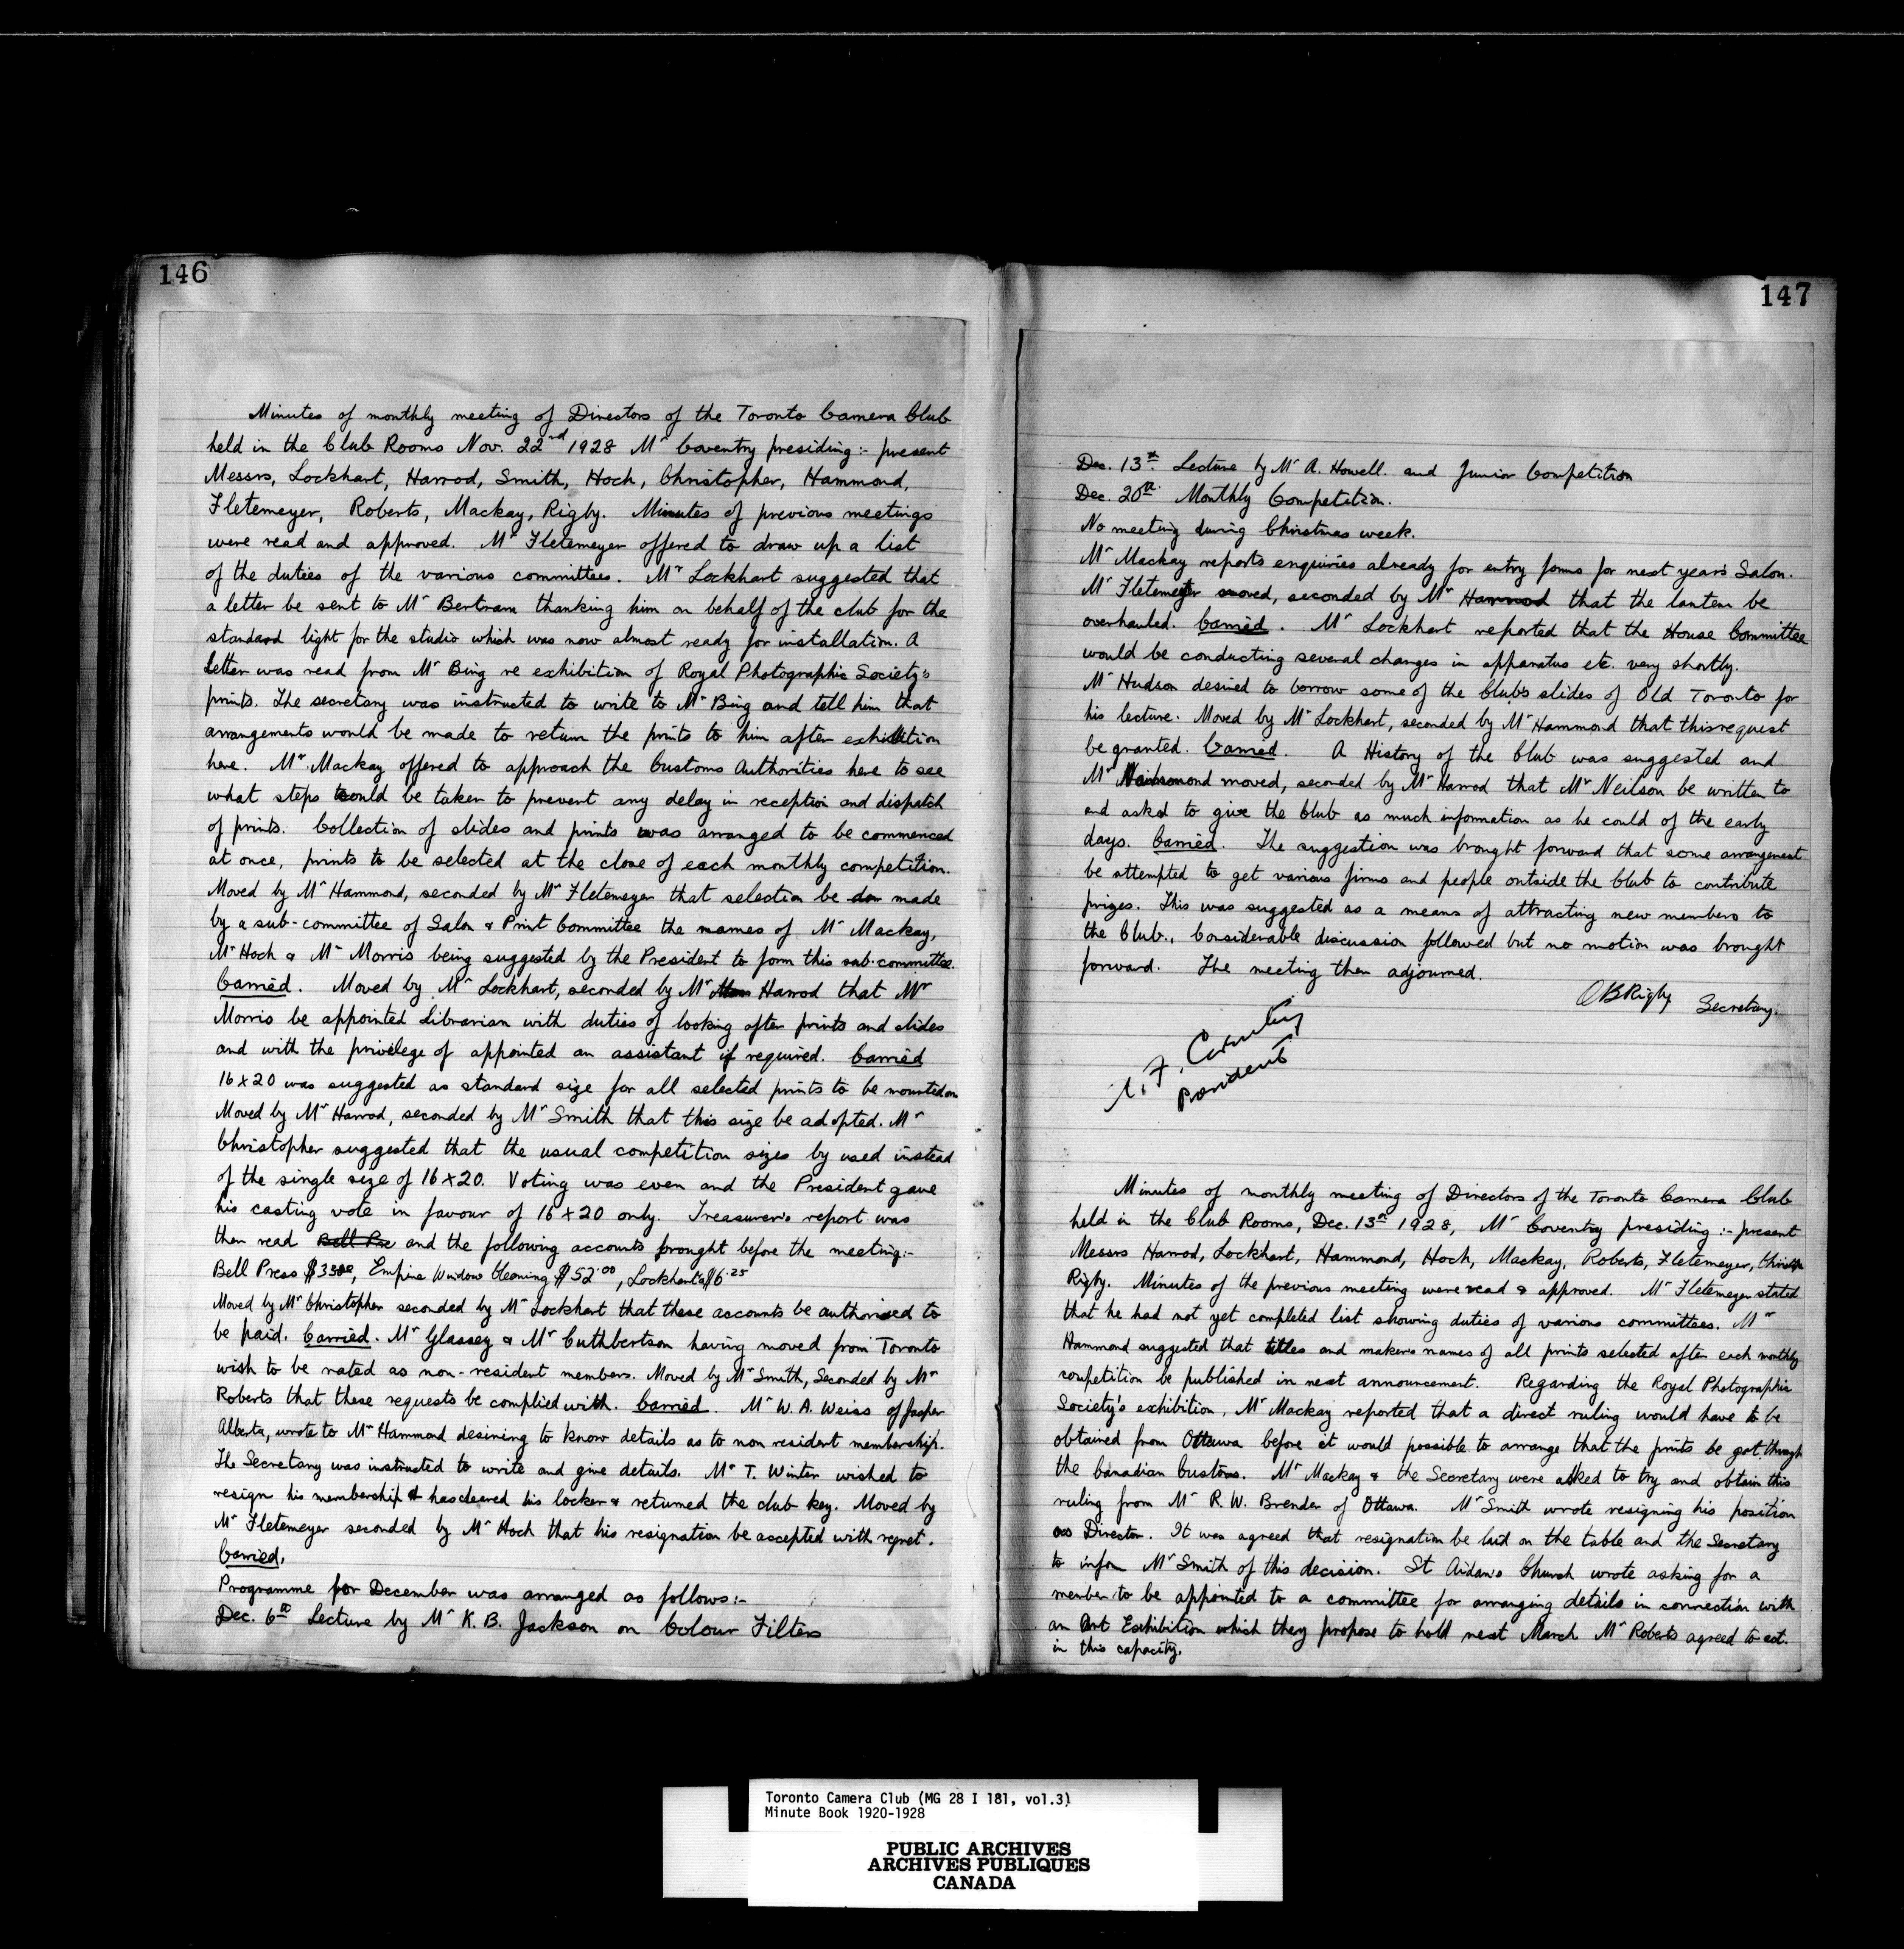 146
Minutes of monthly meeting of Directors of the Toronto Camera Club
held in the Club Rooms Nov. 22nd 1928 Mr Coventry presiding :- present
Messrs, Lockhart, Harrod, Smith, Hoch, Christopher, Hammond,
Fletemeyer, Roberts, Mackay, Rigby. Minutes of previous meetings
were read and approved. Mr Fletemeyer offered to draw up a list
of the duties of the various committees. Mr Lockhart suggested that
a letter be sent to Mr Bertram thanking him on behalf of the club for the
standard light for the studio which was now almost ready for installation. A
letter was read from Mr Bing re exhibition of Royal Photographic Society's
prints. The secretary was instructed to write to Mr Bing and tell him that
arrangements would be made to return the prints to him after exhibition
here. Mr Mackay offered to approach the Customs Authorities here to see
what steps could be taken to prevent any delay in reception and dispatch
of prints. Collection of slides and prints was arranged to be commenced
at once, prints to be selected at the close of each monthly competition.
Moved by Mr Hammond, seconded by Mr Fletemeyer that selection be made
by a sub-committee of Salon & Print Committee the names of Mr Mackay,
Mr Hoch & Mr Morris being suggested by the President to form this sub-committee.
Carried. Moved by Mr Lockhart, seconded by Mr Harrod that Mr
Morris be appointed Librarian with duties of looking after prints and slides
and with the privelege of appointed an assistant if required. Carried
16x20 was suggested as standard size for all selected prints to be mounted on
Moved by Mr Harrod, seconded by Mr Smith that this size be adopted. Mr
Christopher suggested that the usual competition sizes by used instead
of the single size of 16x20. Voting was even and the President gave
his casting vote in favour of 16x20 only. Treasurer's report was
then read Bell Pre and the following accounts brought before the meeting:-
Bell Press Empire Window Cleaning $52.00, Lockhart's $6.25
Moved by Mr Christopher seconded by Mr Lockhart that these accounts be authorised to
be paid. Carried. Mr Glassey & Mr Cuthbertson having moved from Toronto
wish to be rated as non-resident members. Moved by Mr Smith, Seconded by Mr
Roberts that these requests be complied with. Carried. Mr W. A. Weiss of Jasper
Alberta, wrote to Mr Hammond desiring to know details as to non resident membership.
The Secretary was instructed to write and give details. Mr T. Winter wished to
resign his membership & has cleared his locker & returned the club key. Moved by
Mr Fletemeyer seconded by Mr Hoch that his resignation be accepted with regret.
Carried.
Programme for December was arranged as follows:-
Dec. 6th Lecture by Mr K. B. Jackson on Colour Filters
147
Dec. 13th Lecture by Mr A. Howell. and Junior Competition
Dec. 20th Monthly Competition.
No meeting during Christmas week.
Mr Mackay reports enquiries already for entry forms for next year's Salon.
Mr Fletemeyer moved, seconded by Mr Harrod that the lantern be
overhauled. Carried. Mr Lockhart reported that the House Committee
would be conducting several changes in apparatus etc. very shortly.
Mr Hudson desired to borrow some of the Club's slides of Old Toronto for
his lecture. Moved by Mr Lockhart, seconded by Mr Hammond that this request
be granted. Carried. A History of the Club was suggested and
Mr Hammond moved, seconded by Mr Harrod that Mr Neilson be written to
and asked to give the Club as much information as he could of the early
days. Carried. The suggestion was brought forward that some arrangement
be attempted to get various firms and people outside the Club to contribute
prizes. This was suggested as a means of attracting new members to
the Club. Considerable discussion followed but no motion was brought
forward. The meeting then adjourned.
OBRigby Secretary.
F. Coventry
President
Minutes of monthly meeting of Directors of the Toronto Camera Club
held in the Club Rooms, Dec. 13th 1928, Mr Coventry presiding :- present
Messrs Harrod, Lockhart, Hammond, Hoch, Mackay, Roberts, Fletemeyer,
Rigby. Minutes of the previous meeting were read & approved. Mr Fletemeyer stated
that he had not yet completed list showing duties of various committees. Mr
Hammond suggested that titles and makers names of all prints selected after each monthly
competition be published in next announcement. Regarding the Royal Photographic
Society's exhibition, Mr Mackay reported that a direct ruling would have to be
obtained from Ottawa before it would possible to arrange that the prints be got through
the Canadian Customs. Mr Mackay & the Secretary were asked to try and obtain this
ruling from Mr R. W. Brender of Ottawa. Mr Smith wrote resigning his position
as Director. It was agreed that resignation be laid on the table and the Secretary
to infom Mr Smith of this decision. St Aidan's Church wrote asking for a
member to be appointed to a committee for arranging details in connection with
an Art Exhibition which they propose to hold next March Mr Roberts agreed to act.
in this capacity.
Toronto Camera Club (MG 28 I 181, vol.3)
Minute Book 1920-1928
PUBLIC ARCHIVES
ARCHIVES PUBLIQUES
CANADA